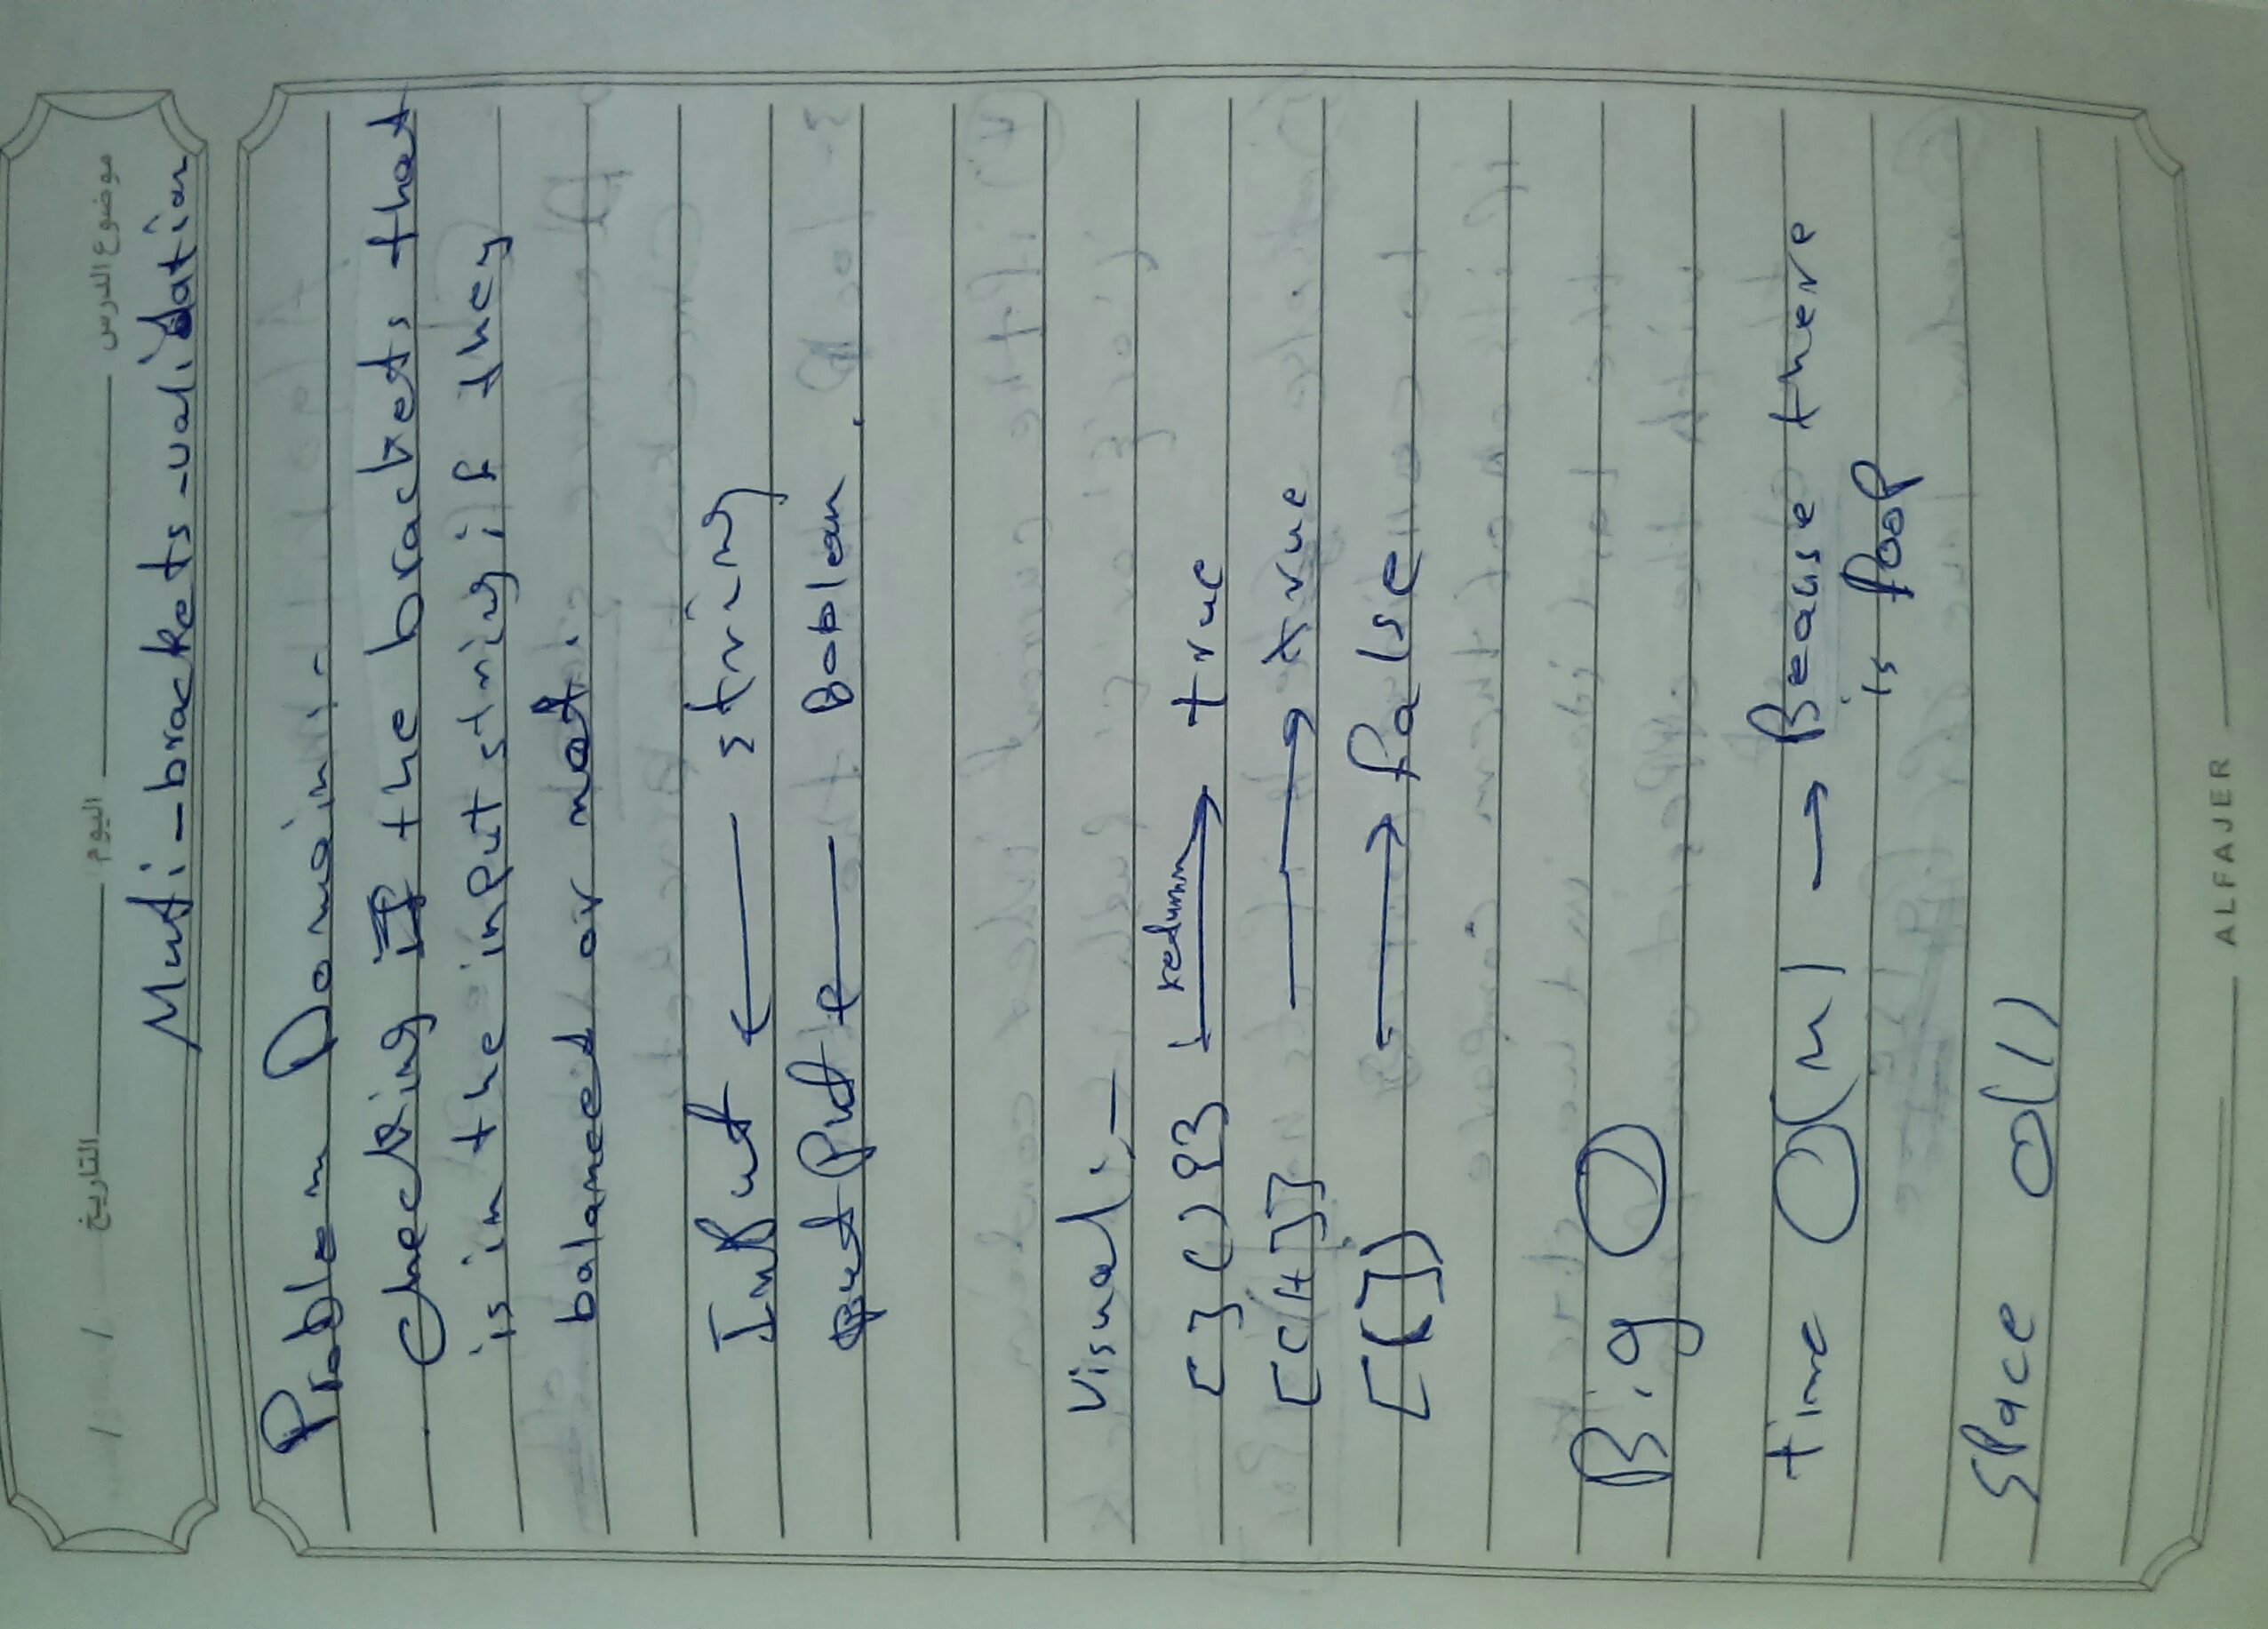 موضوع الدرس اليوم التاريخ / /
Muti-brackets-validation
Problem Domain:-
checking if the brackets that
is in the input string if they
balanced or not.
Input ← string
outPut ← Boolean.
Visual:-
true
true
[(]) → false
Big O
time O(n) → Beause there
is foop
Space O(1)
ALFAJER